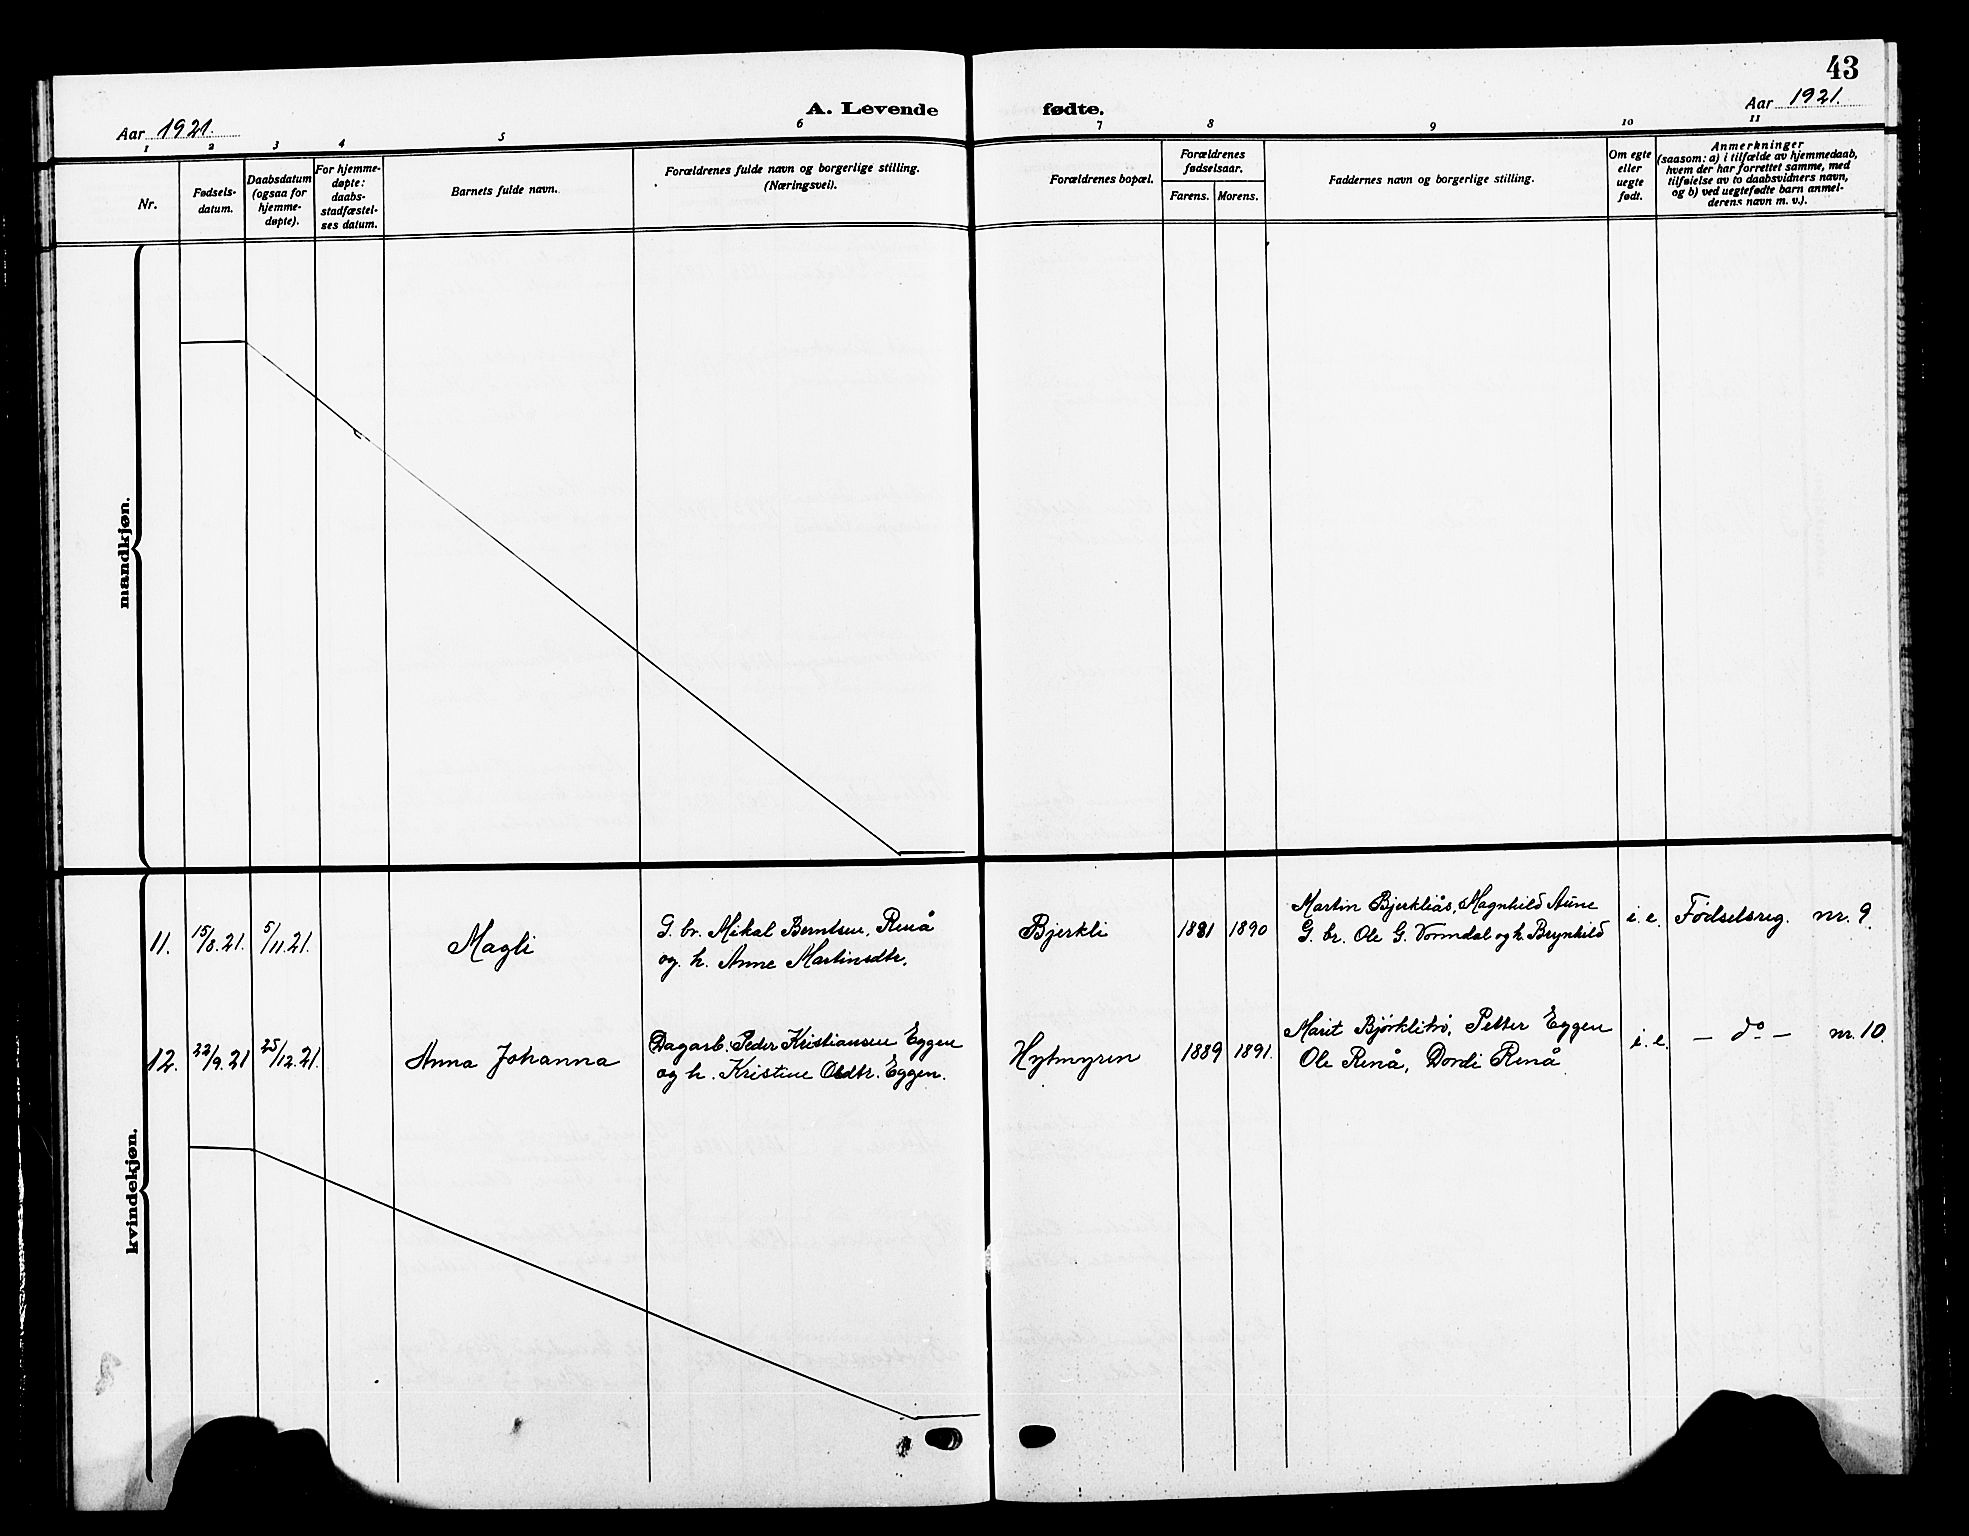 43
A. Levende fødte.
Aar 1921.
Aar 1921.
1 2 3 4 5 6 7 8 9 10 11
Nr.
Fødsels-
datum.
Daabsdatum
(ogsaa for
hjemme-
døpte).
For hjemme-
døpte:
daabs-
stadfæstel-
ses datum.
Barnets fulde navn.
Forældrenes fulde navn og borgerlige stilling.
(Næringsvei).
Forældrenes bopæl.
Forældrenes
fødselsaar.
Farens. Morens.
Faddernes navn og borgerlige stilling.
Om egte
eller
uegte
født.
Anmerkninger
(saasom: a) i tilfælde av hjemmedaab,
hvem der har forrettet samme, med
tilføielse av to daabsvidners navn,
og b) ved uegtefødte barn anmel-
derens navn m. v.).
mandkjøn.
kvindekjøn.
11. 15/8.21. 5/11.21. Magli
G. br. Mikal Berntsen, Renå
og h. Anne Martinsdtr.
Bjerkli 1881 1890
Martin Bjerkliås, Magnhild Aune
G. br. Ole G. Vormdal og h. Brynhild
i. e. Fødselsreg. nr. 9.
12. 22/9.21 25/12.21. Anna Johanna
Dagarb. Peder Kristiansen Eggen
og h. Kristine Olsdtr. Eggen.
Hytmyren 1889 1891.
Marit Bjørklitrø, Petter Eggen
Ole Renå, Dordi Renå
i. e. — do — nr. 10.